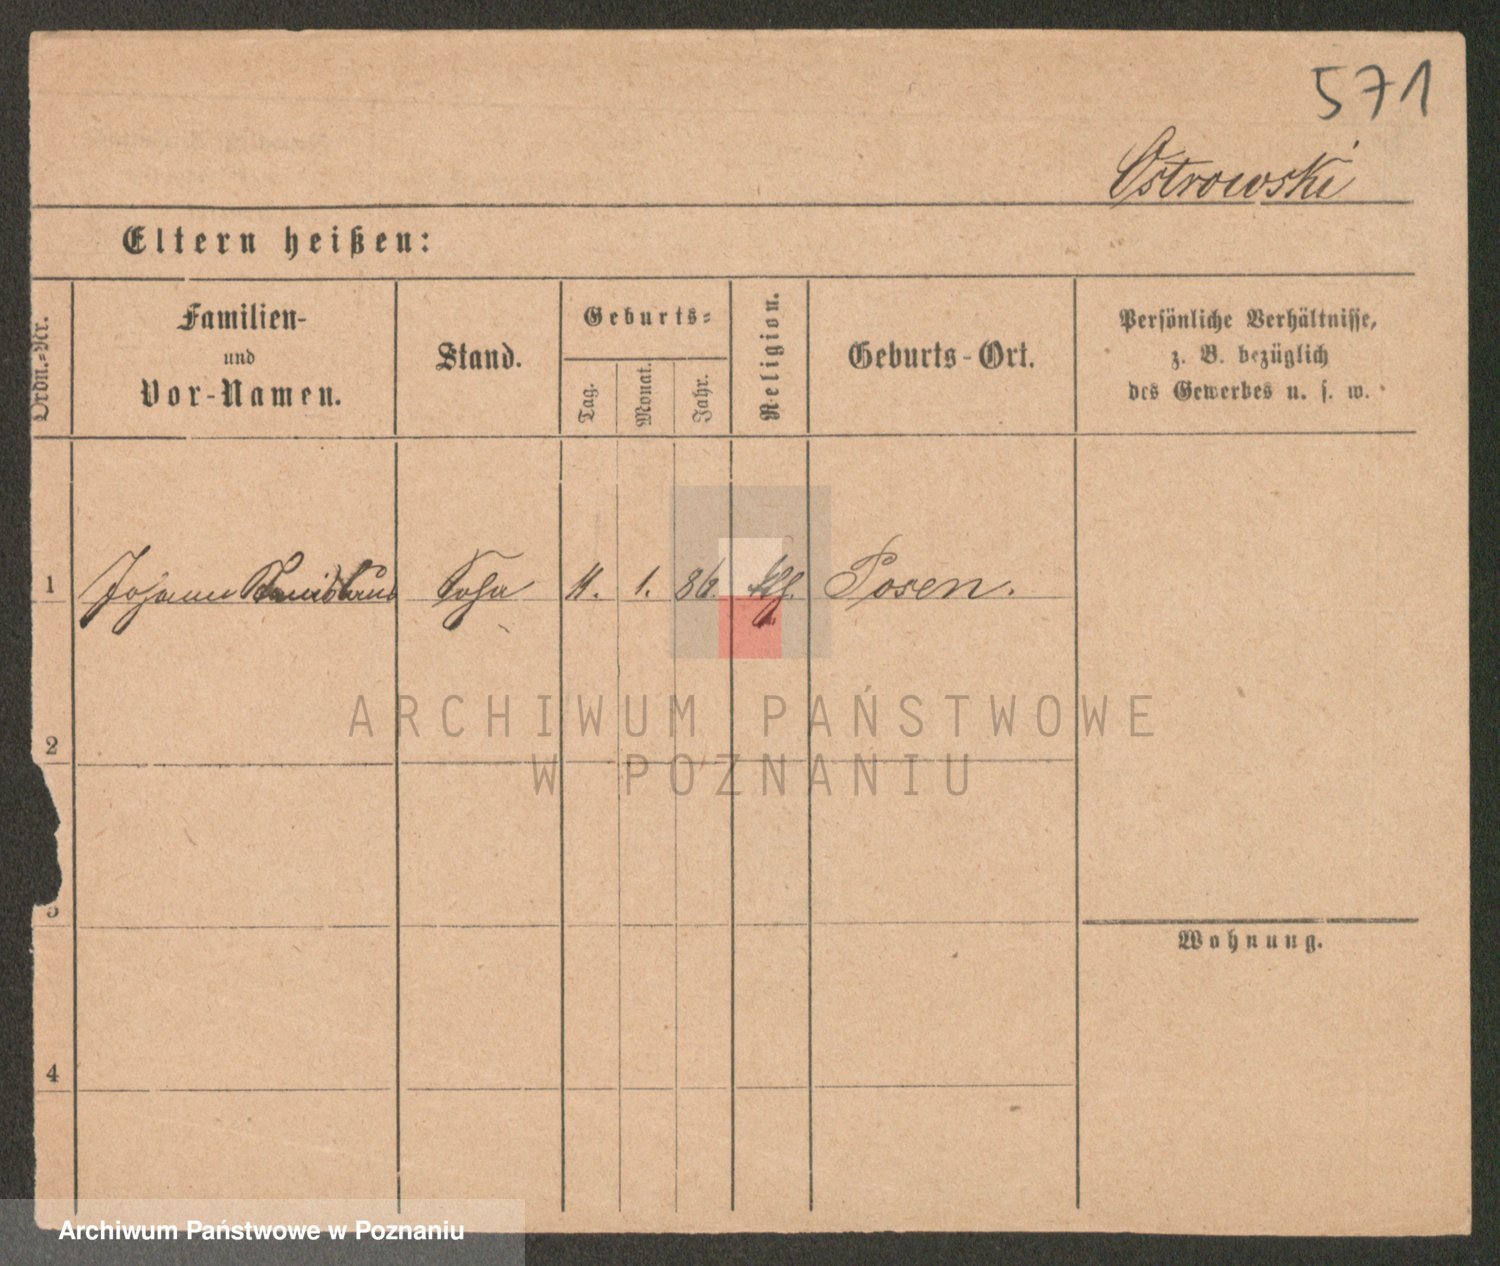 571
Ostrowski
Eltern heißen:
Ordn.-Nr.
Familien-
und
Vor-Namen.
Stand.
Geburts-
Tag.
Monat.
Jahr.
Religion.
Geburts-Ort.
Persönliche Verhältnisse,
z. B. bezüglich
des Gewerbes u. s. w.
1 Johann Stanislaus Sohn 11. 1. 86. kth. Posen.
2
3
4
Wohnung.
ARCHIWUM PAŃSTWOWE
W POZNANIU
Archiwum Państwowe w Poznaniu